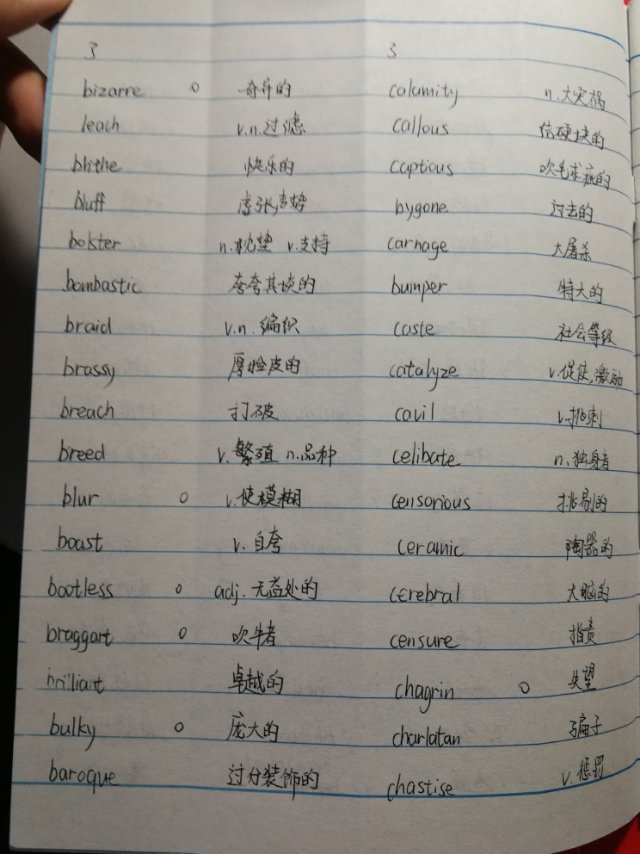 3 3
bizarre o 奇异的 calamity n.大灾祸
leach v.n.过滤 callous 结硬块的
blithe 快乐的 captious 吹毛求疵的
bluff 虚张声势 bygone 过去的
bolster n.枕垫 v.支持 carnage 大屠杀
bombastic 夸夸其谈的 bumper 特大的
braid v.n.编织 caste 社会等级
brassy 厚脸皮的 catalyze v.促使,激励
breach 打破 cavil v.挑刺
breed v.繁殖 n.品种 celibate n.独身者
blur o v.使模糊 censorious 挑剔的
boast v.自夸 ceramic 陶器的
bootless o adj.无益处的 cerebral 大脑的
braggart o 吹牛者 censure 指责
brilliant 卓越的 chagrin o 失望
bulky o 庞大的 charlatan 骗子
baroque 过分装饰的 chastise v.惩罚